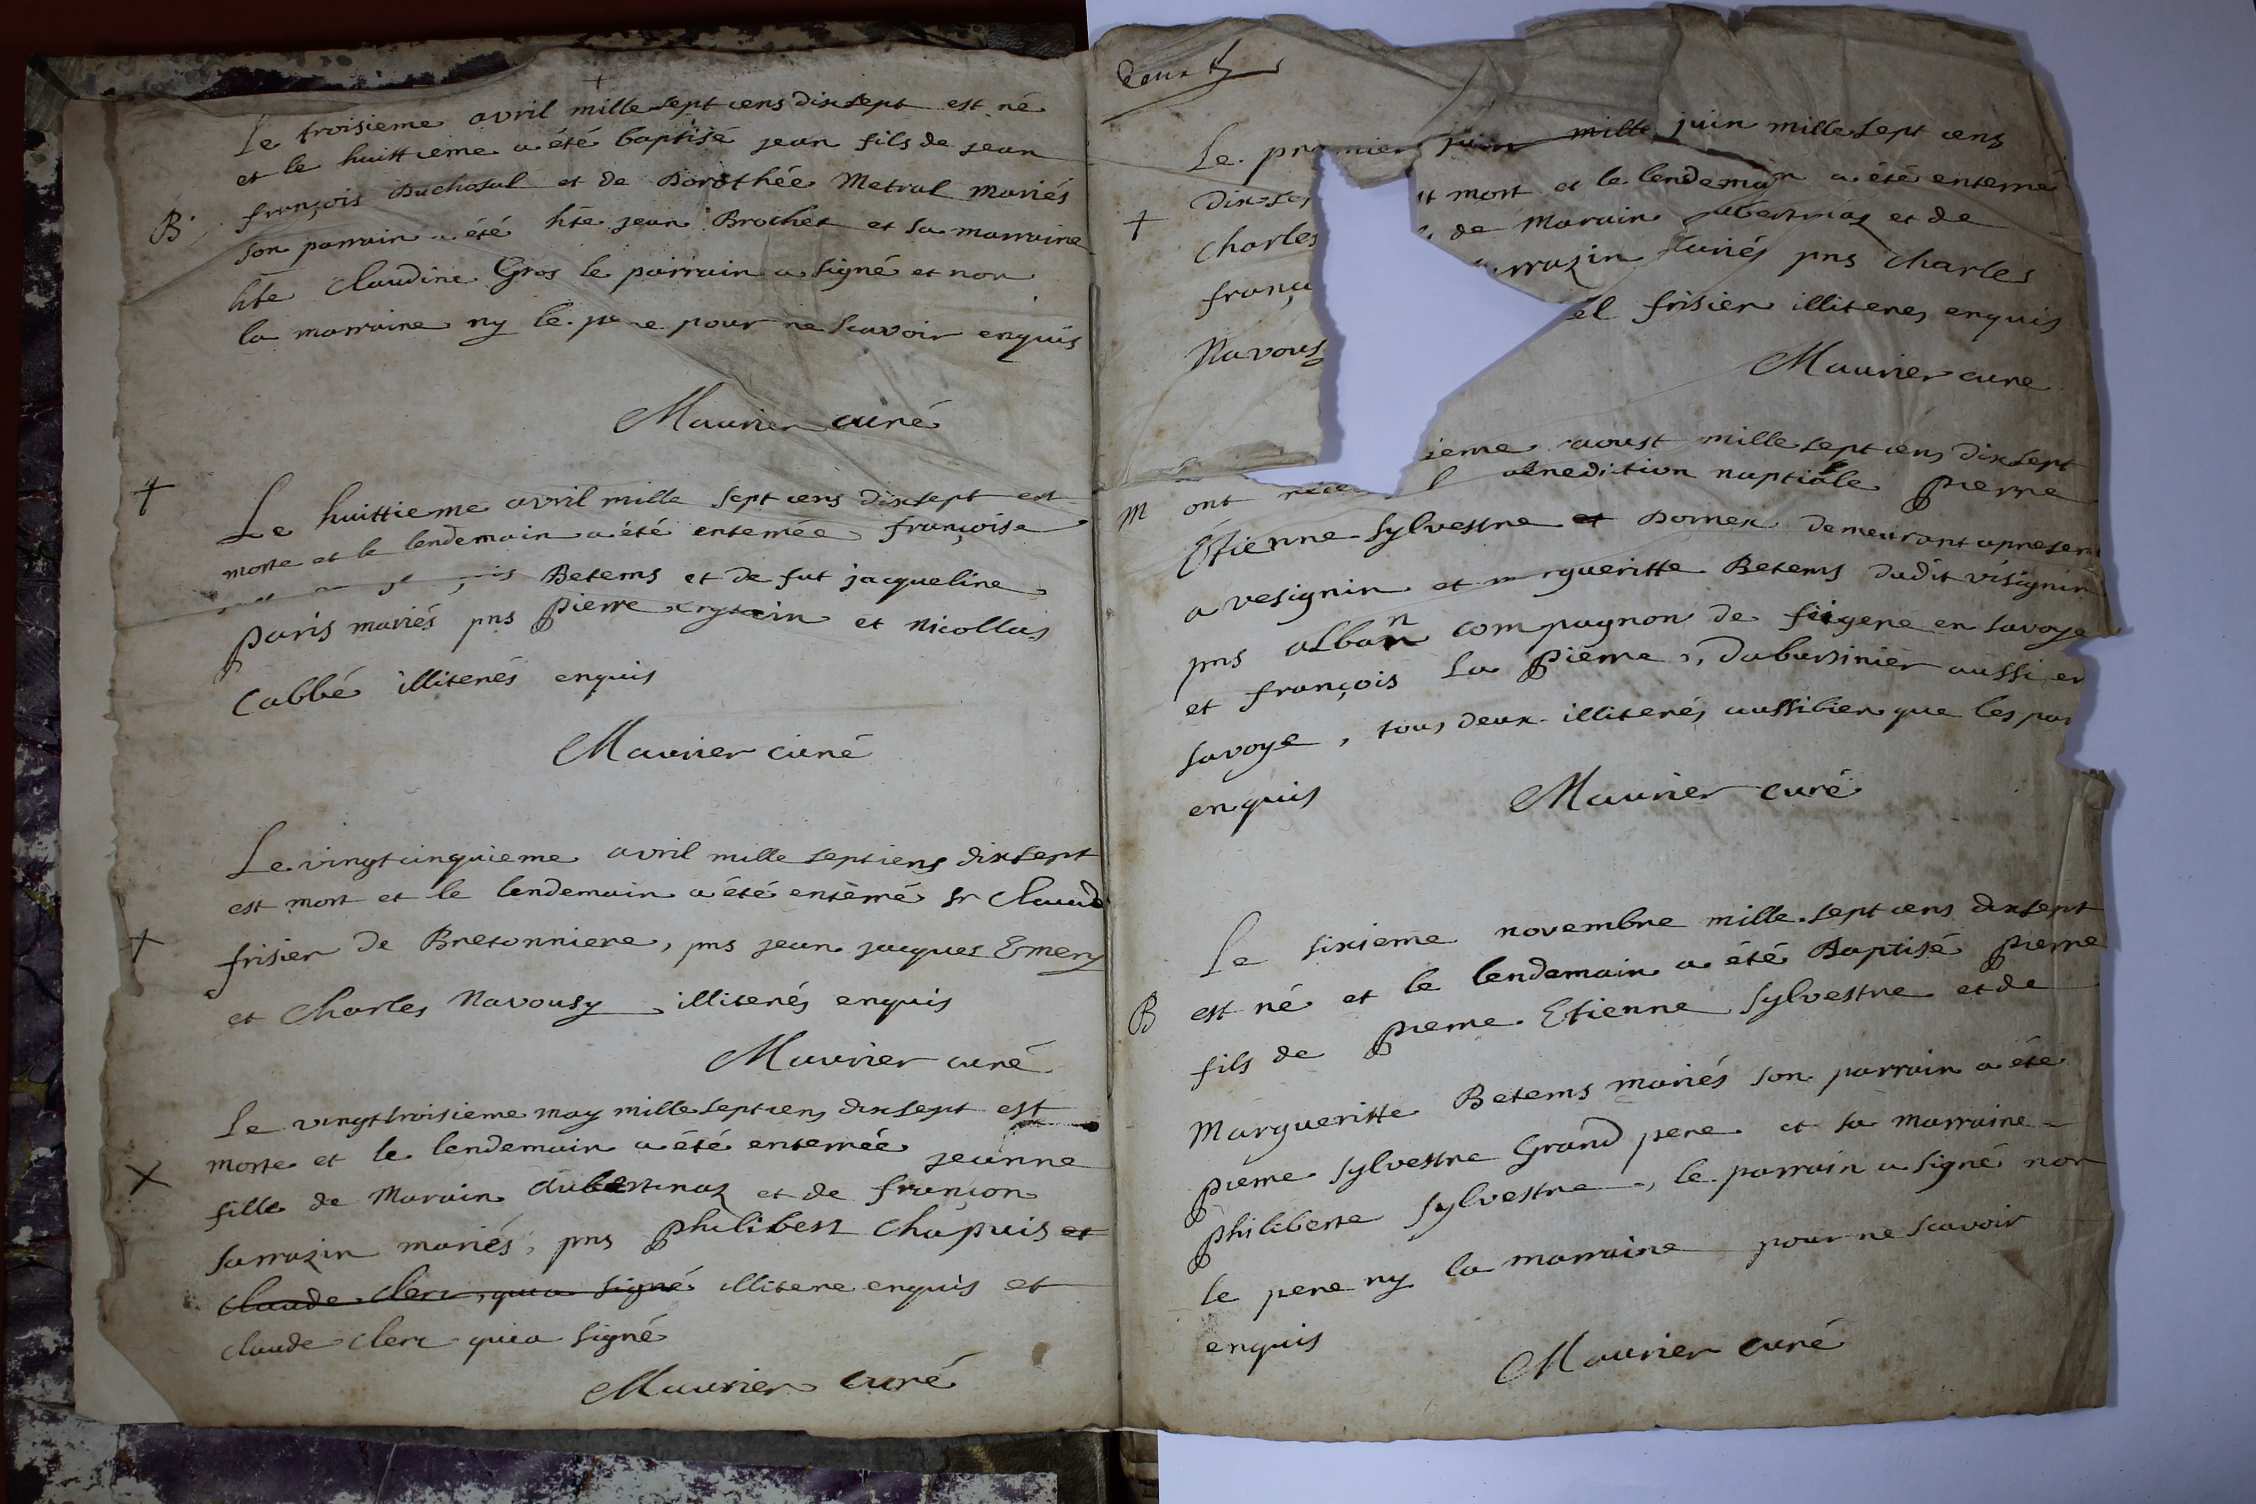 Le troisieme avril mille sept cens dixsept est né
et le huittieme a été baptisé jean fils de jean
B françois Duchosal et de Dorothée Metral mariés
son parrain a été hte jean Brochet et sa marraine
hte Claudine Gros le parrain a signé et non
la marraine ny le pere pour ne scavoir enquis
Maurier curé
+ Le huittieme avril mille sept cens dixsept est
morte et le lendemain a été enterrée françoise
Betems et de fut jacqueline
paris mariés pns pierre et nicollas
Cabbé illiterés enquis
Maurier curé
Le vingtcinquieme avril mille septcens dixsept
est mort et le lendemain a été enterré sr Claude
+ frisier de Bretonniere, pns jean jacques Emery
et Charles Navousy illiterés enquis
Maurier curé
Le vingttroisieme may mille septcens dixsept est
morte et le lendemain a été enterrée jeanne
X fille de Marain Aubertinaz et de françon
sarrazin mariés, pns philibert Chapuis et
claude clerc, qui a signé illitere enquis et
claude clerc qui a signé
Maurier curé
Le premier juin mille juin mille sept cens
dix-sep t mort et le lendemain a été enterré
+ Charles de Marain Aubertinaz et de
franço rrazin mariés pns Charles
Navous el frisier illiteres enquis
Maurier cure
ieme aoust mille septcens dixsept
M ont benediction nuptiale pierre
Estienne Sylvestre et Domex demeurant apresen
a vesignin et margueritte Betems dudit vésignin
pns alban compagnon de figere en savoye
et françois la pierre, Daburinier aussi en
savoye, tous deux illiterés aussibien que les par
enquis
Maurier curé
Le sixieme novembre mille septcens dixsept
B est né et le lendemain a été Baptisé pierre
fils de pierre Etienne Sylvestre et de
Margueritte Betems mariés son parrain a été
pierre sylvestre Grand pere et sa marraine
philiberte sylvestre, le parrain a signé non
le pere ny la marraine pour ne scavoir
enquis
Maurier curé